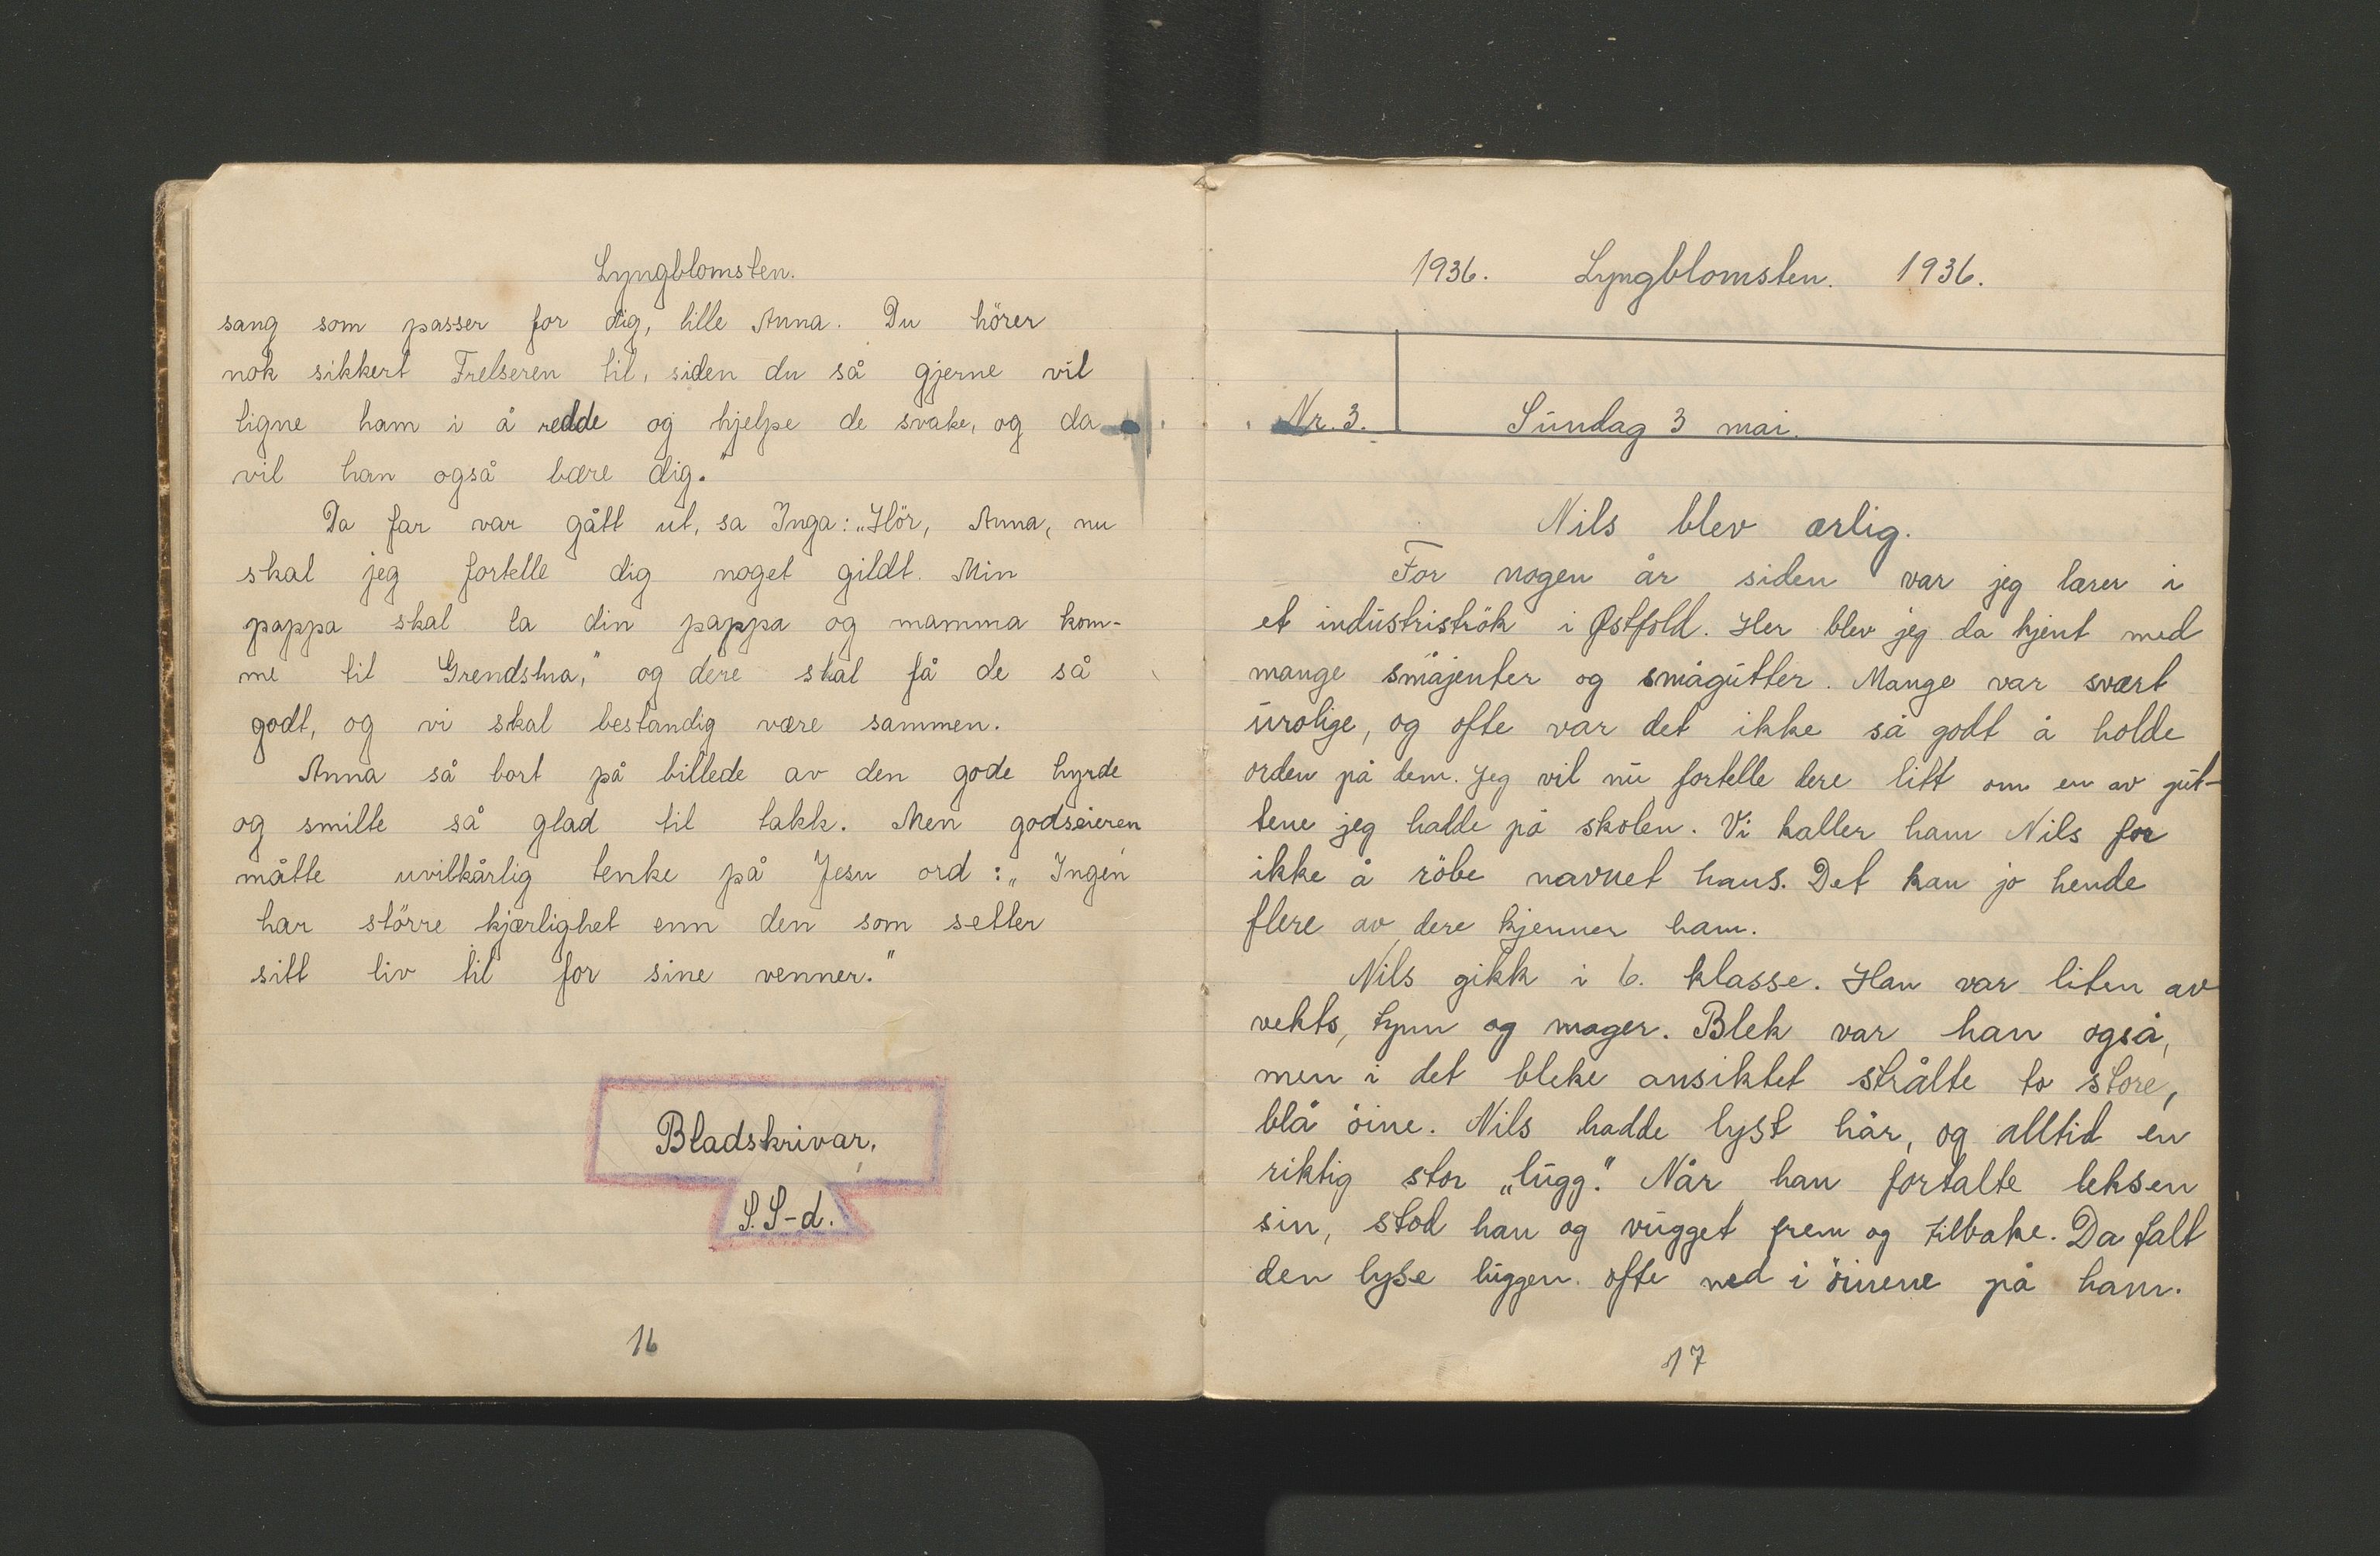 Lyngblomsten.
sang som passer for dig, lille Anna. Du hörer
nok sikkert Frelseren til, siden du så gjerne vil
ligne ham i å redde og hjelpe de svake, og da
vil han også bære dig."
Da far var gått ut, sa Inga: „Hör, Anna, nu
skal jeg fortelle dig noget gildt. Min
pappa skal la din pappa og mamma kom-
me til Grendstua," og dere skal få de så
godt, og vi skal bestandig være sammen.
Anna så bort på billede av den gode hyrde
og smilte så glad til takk. Men godseieren
måtte uvilkårlig tenke på Jesu ord: „Ingen
har större kjærlighet enn den som setter
sitt liv til for sine venner."
Bladskrivar,
S. S-d.
16
1936. Lyngblomsten. 1936.
Nr. 3. Sundag 3 mai.
Nils blev ærlig.
For nogen år siden var jeg lærer i
et industriströk i Østfold. Her blev jeg da kjent med
mange småjenter og smågutter. Mange var svært
urolige, og ofte var det ikke så godt å holde
orden på dem. Jeg vil nu fortelle dere litt om en av gut-
tene jeg hadde på skolen. Vi kaller ham Nils for
ikke å röbe navnet hans. Det kan jo hende
flere av dere kjenner ham.
Nils gikk i 6. klasse. Han var liten av
vekts, tynn og mager. Blek var han også,
men i det bleke ansiktet strålte to store,
blå öine. Nils hadde lyst hår, og alltid en
riktig stor „lugg". Når han fortalte leksen
sin, stod han og vugget frem og tilbake. Da falt
den lyse luggen ofte ned i öinene på ham.
17